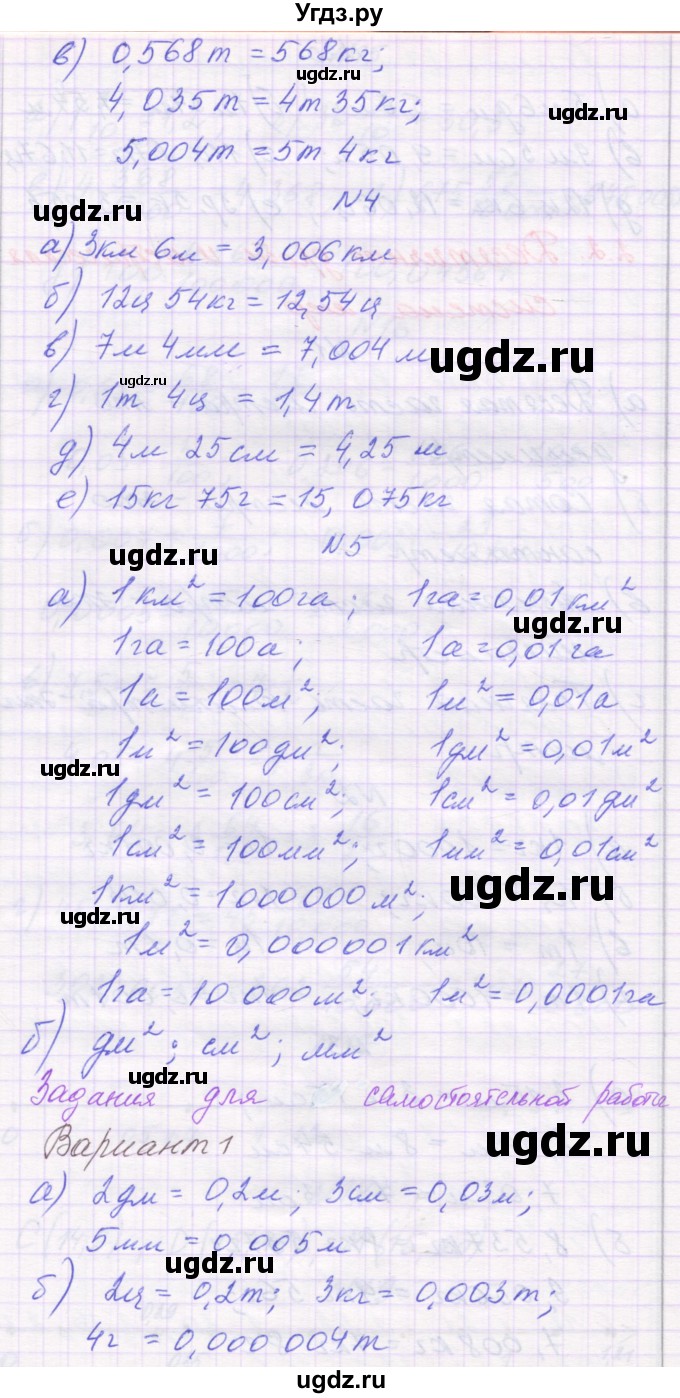 Угдз.ру
в) 0,568т = 568кг;
ugdz.ru
4,035т = 4т 35кг;
ugdz.ru
5,004т = 5т 4кг
ugdz.ru
N4
а) 3км 6м = 3,006км
б) 12ц 54кг = 12,54ц
в) 7м 4мм = 7,004м
ugdz.ru
ugdz.ru
г) 1т 4ц = 1,4т
д) 4м 25см = 4,25м
е) 15кг 75г = 15,075кг
ugdz.ru
N5
а) 1км² = 100га; 1га = 0,01км²
ugdz.ru
1га = 100а; 1а = 0,01га
1а = 100м²; 1м² = 0,01а
1м² = 100дм²; 1дм² = 0,01м²
ugdz.ru
1дм² = 100см²; 1см² = 0,01дм²
1см² = 100мм²; 1мм² = 0,01см²
1км² = 1000000м²;
ugdz.ru
ugdz.ru
1м² = 0,000001км²
1га = 10 000м²; 1м² = 0,0001га
б) дм²; см²; мм²
ugdz.ru
Задания для самостоятельной работы
Вариант 1
ugdz.ru
а) 2дм = 0,2м; 3см = 0,03м;
5мм = 0,005м
ugdz.ru
б) 2ц = 0,2т; 3кг = 0,003т;
4г = 0,000 004т
ugdz.ru